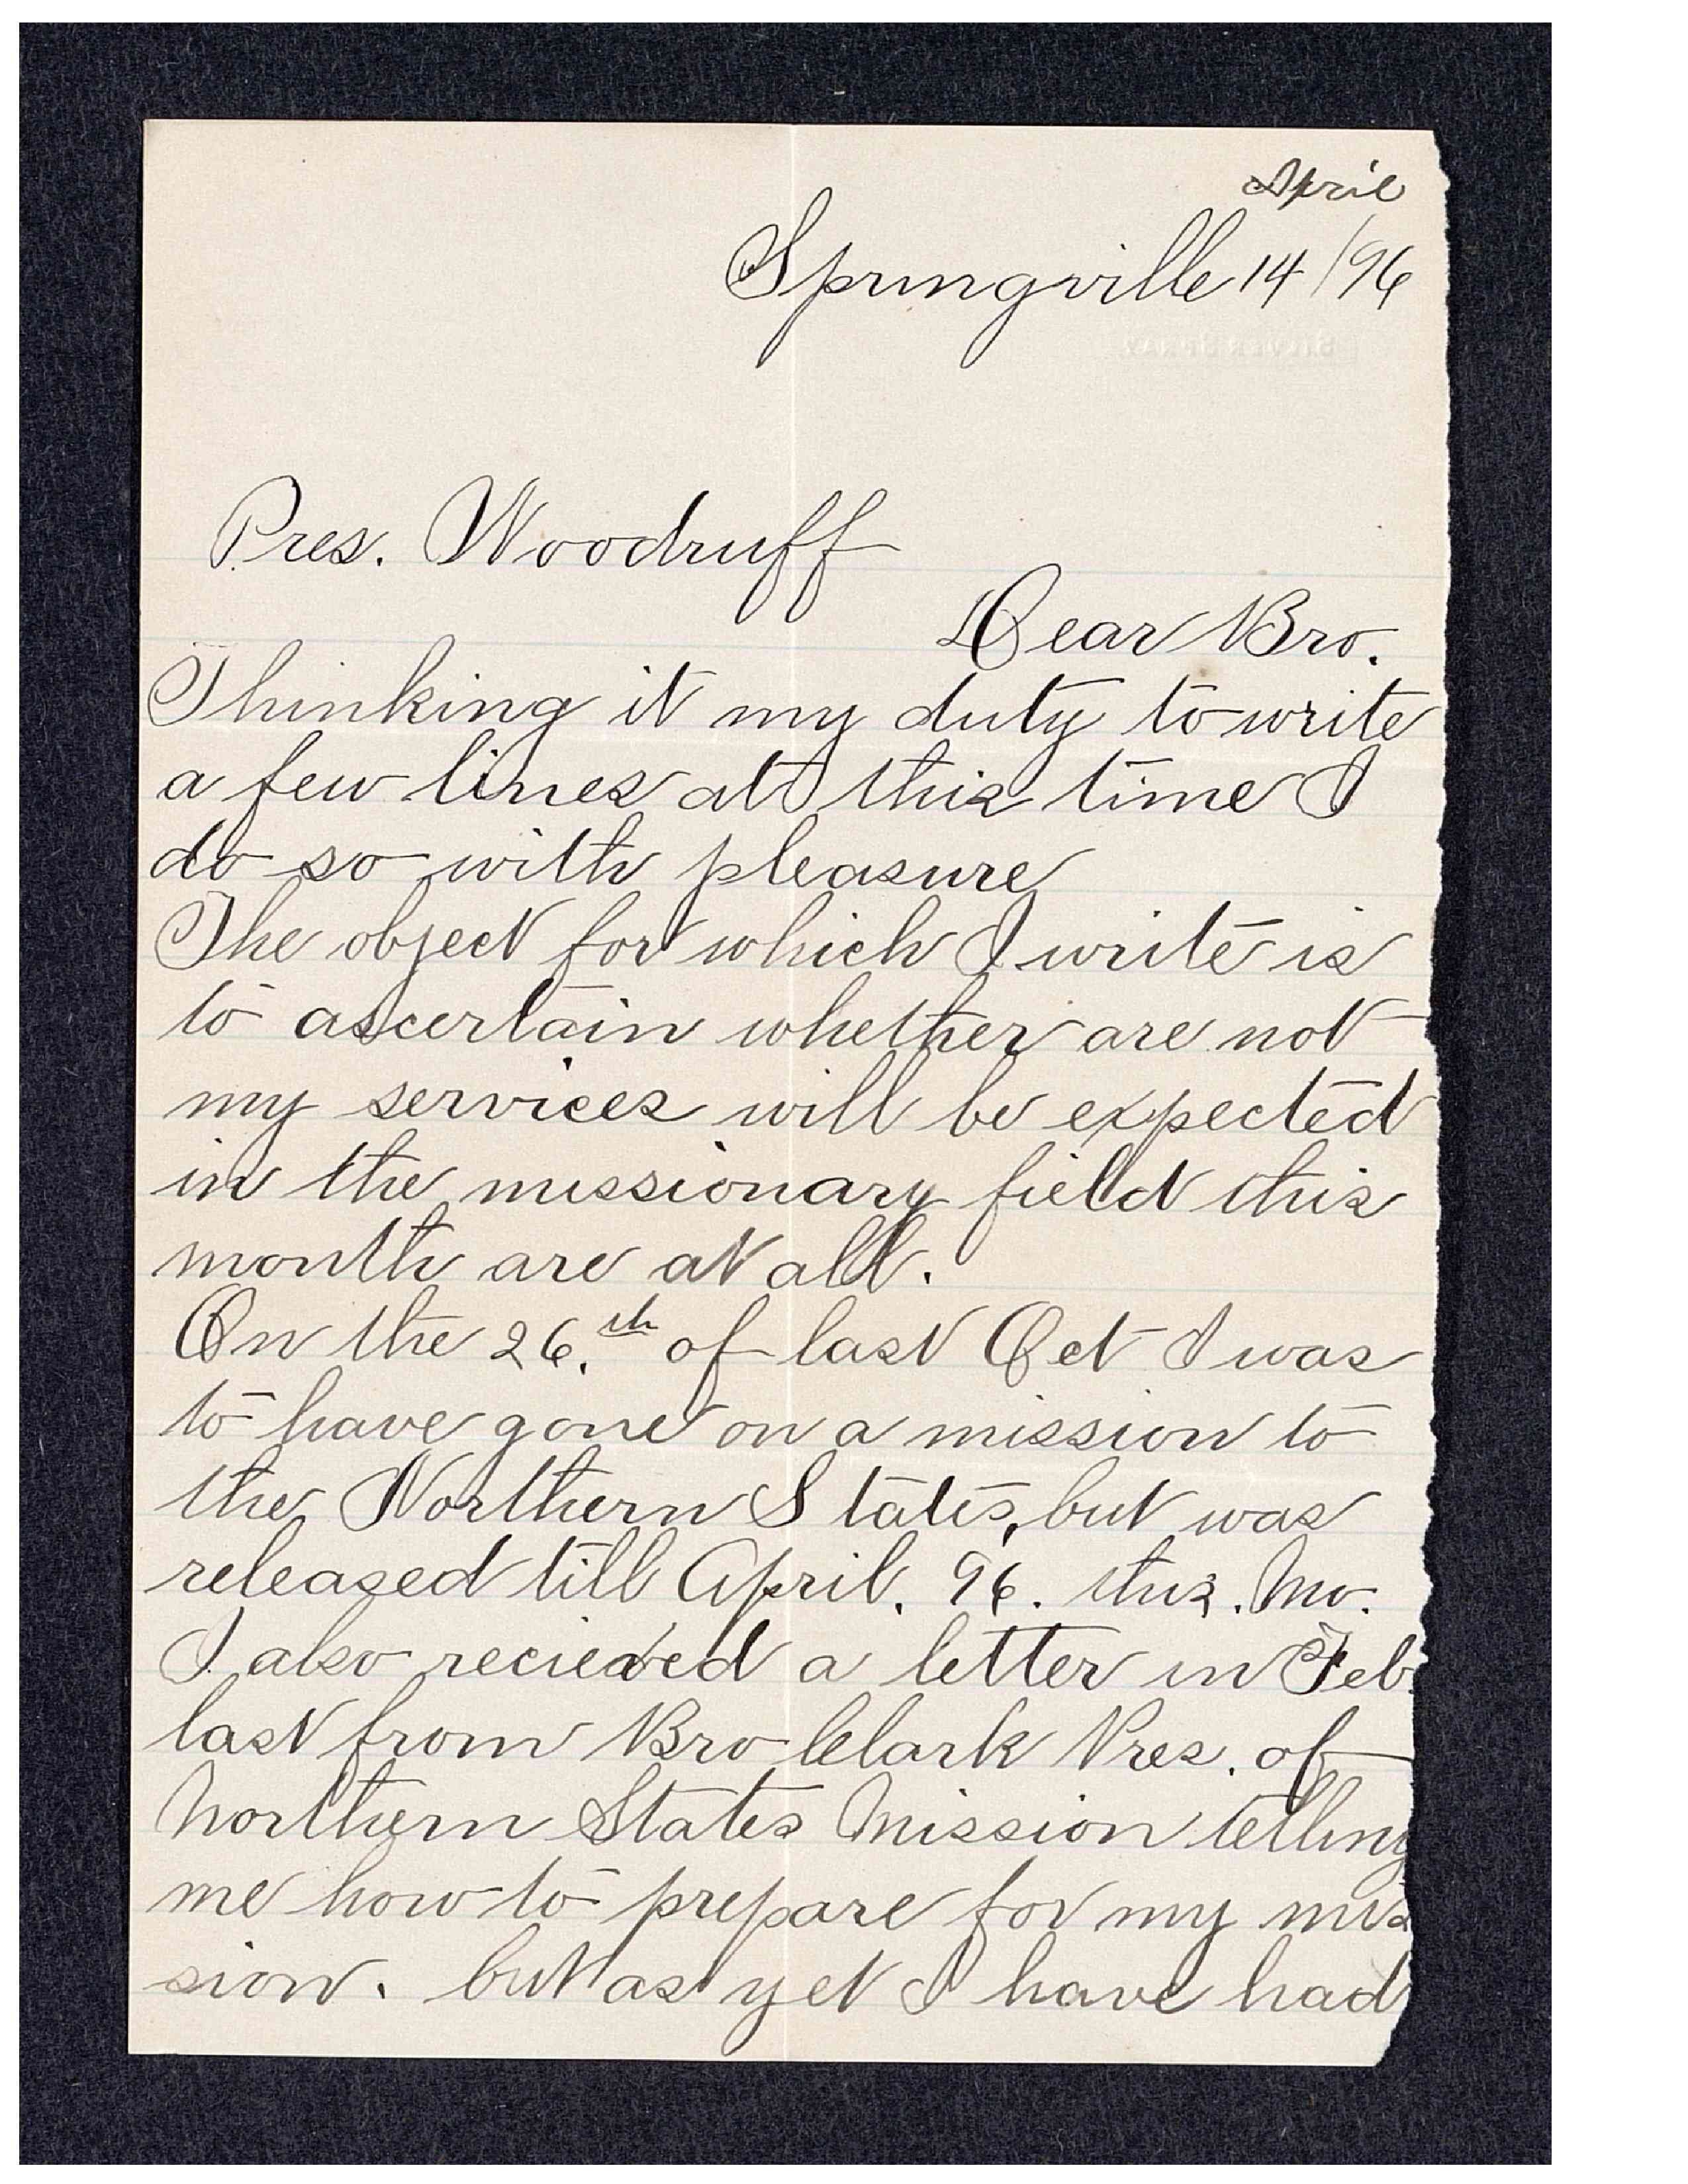 April
Springville 14/96
Pres. Woodruff
Dear Bro.
Thinking it my duty to write
a few lines at this time I
do so with pleasure
The object for which I write is
to ascertain whether are not
my services will be expected
in the missionary field this
month are at all.
On the 26.th of last Oct I was
to have gone on a mission to
the Northern States, but was
released till April. 96. this. Mo.
I also recieved a letter in Feb.
last from Bro Clark Pres. of
Northern States Mission telling
me how to prepare for my mis
sion. but as yet I have had